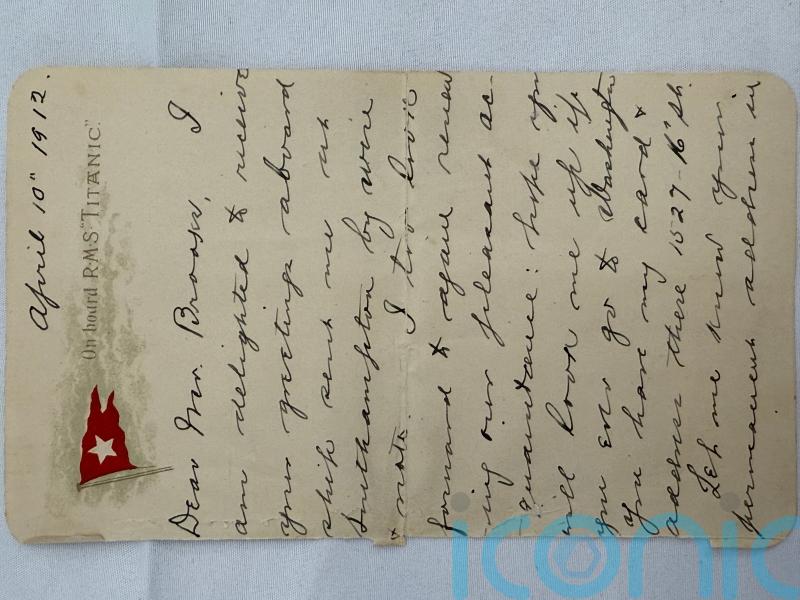 April 10" 1912.
On board R.M.S. "TITANIC."
Dear Mr. Brooks, I
am delighted to receive
your greetings aboard
ship sent me at
Southampton by wire
& note. I too look
forward to again renew
-ing our pleasant ac-
quaintance: hope you
will look me up if
you ever go to Washington
you have my card &
address there 1527-16" St.
Let me know your
permanent address in
iconic